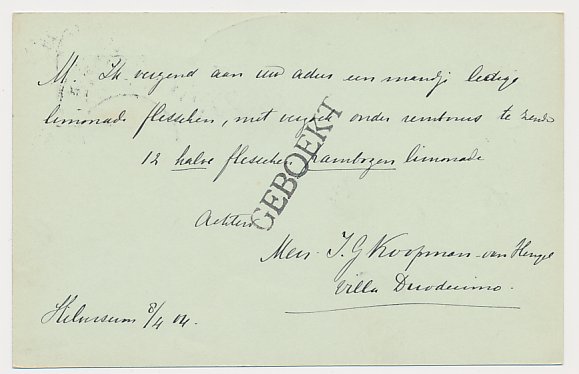 M. Ik verzend aan uw adres een mandje ledige
limonade flesschen, met verzoek onder rembours te zenden
12 halve flesschen frambozen limonade
GEBOEKT
Achtend
Mevr. J. G. Koopman-van Hengel
Villa Duodecimo.
Hilversum 8/4 04.